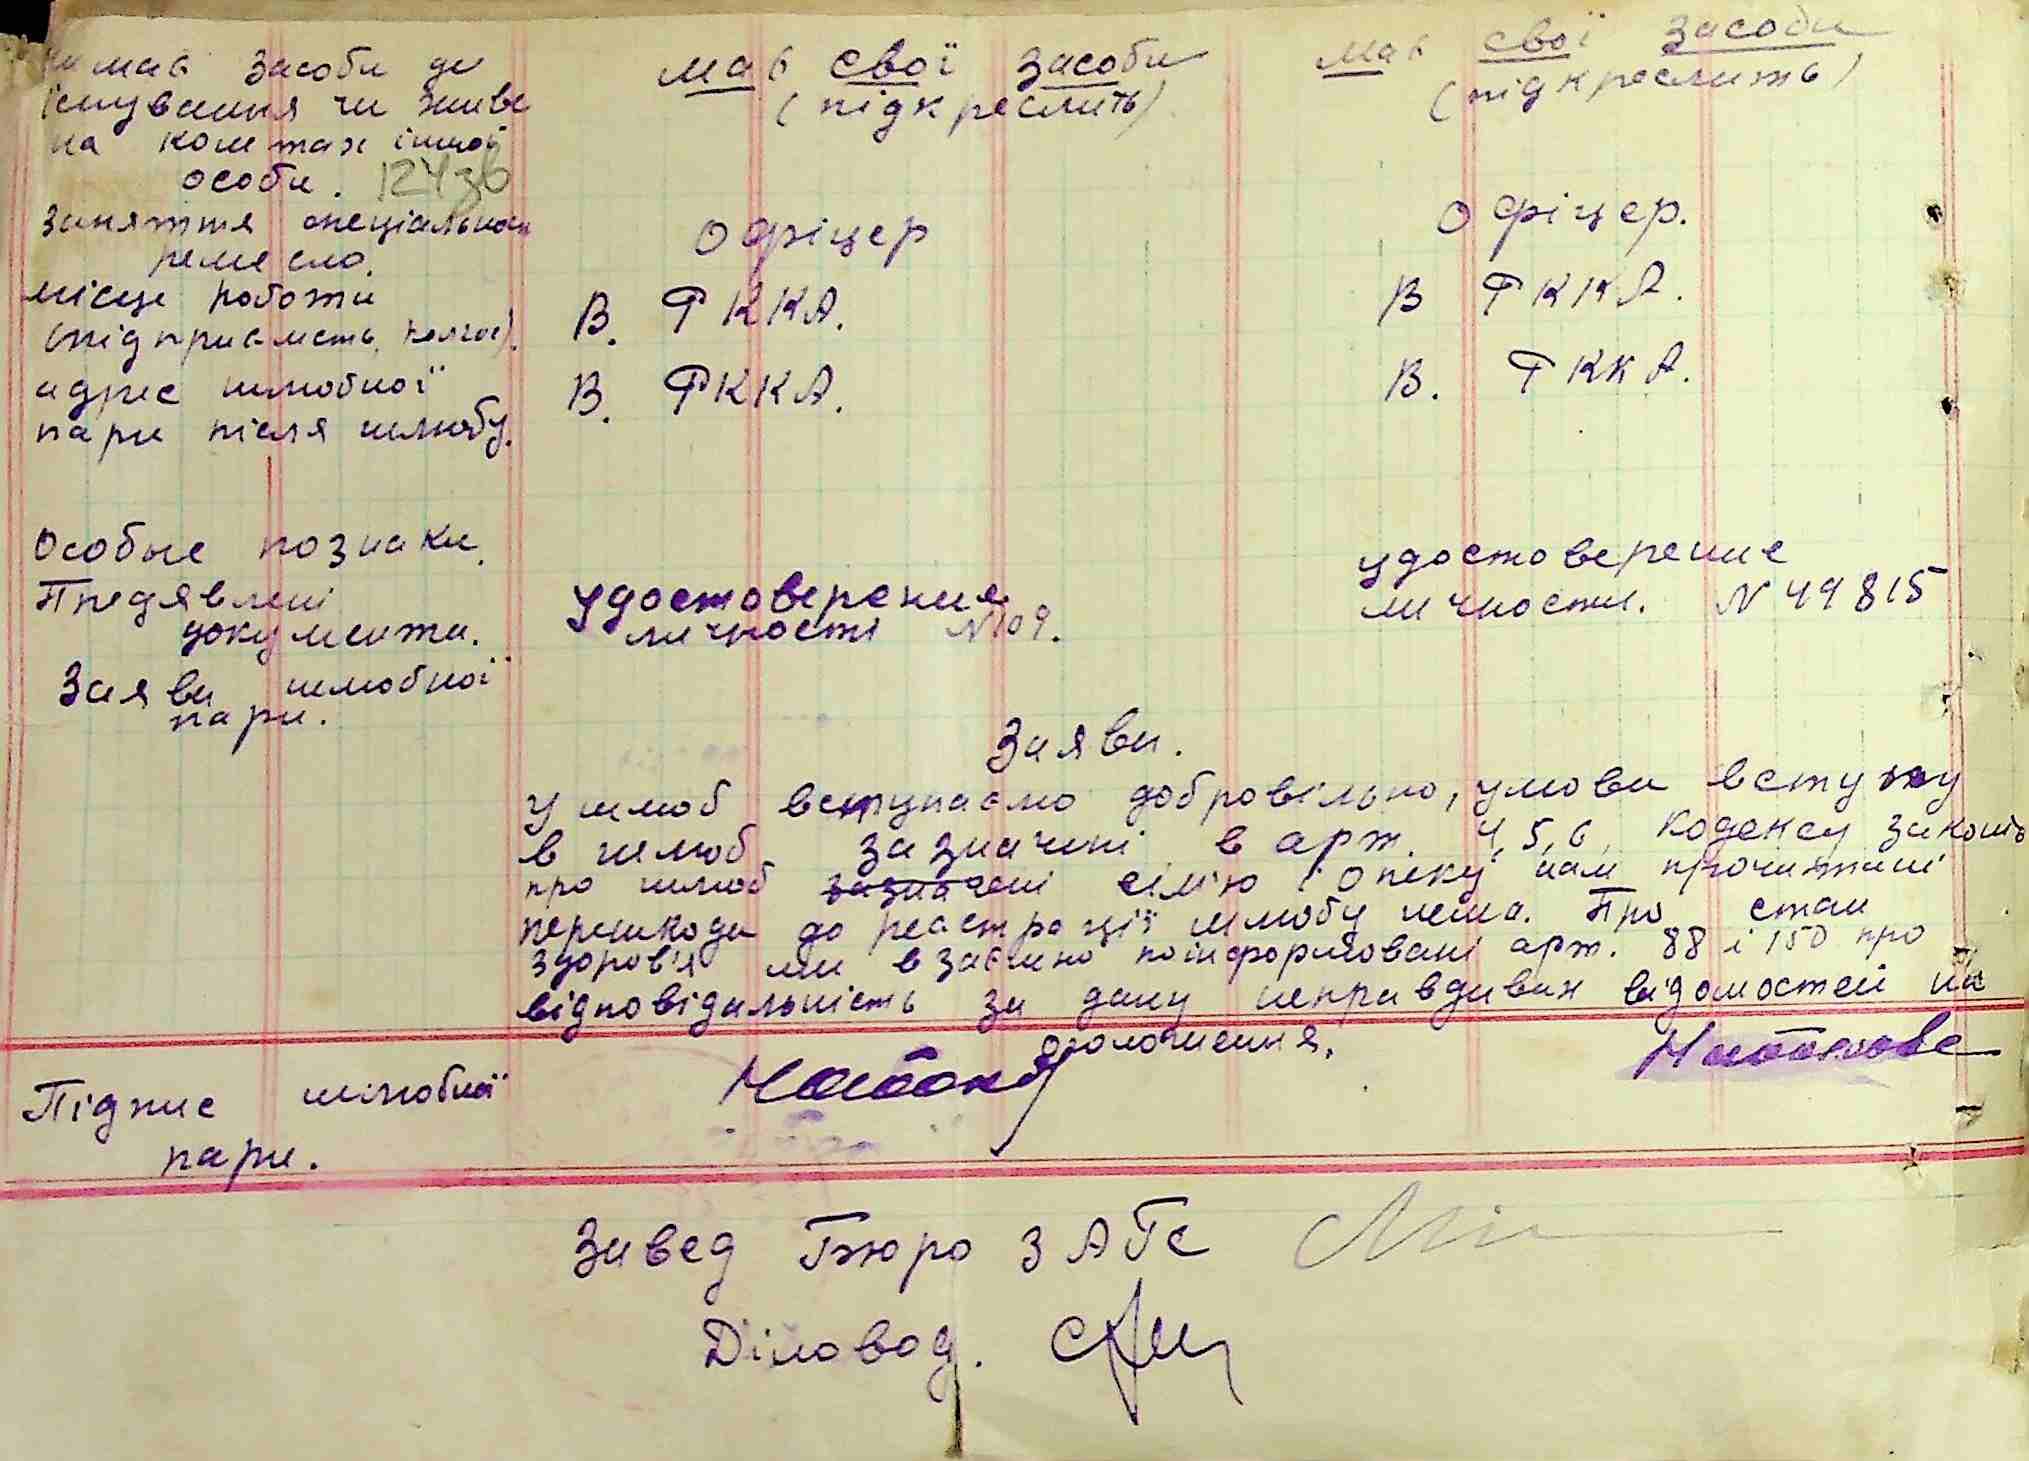 чи має засоби до
існування чи живе
на коштах іншої
особи. 124зв
має свої засоби
(підкреслить)
має свої засоби
(підкреслить)
Заняття спеціальність
ремесло.
Офіцер
Офіцер.
місце роботи
(підприємств, колгос).
В. РККА.
В РККА.
адрес шлюбної
пари після шлюбу.
В. РККА.
В. РККА.
Особые познаки.
Предявлені
документи.
удостоверение
личності №109.
удостоверение
личности. № 49815
Заяви шлюбної
пари.
Заяви.
У шлюб вступаємо добровільно, умови вступу
в шлюб зазначені в арт. 4, 5, 6, кодексу законів
про шлюб зазначені сім'ю і опеку нам прочитані
перешкоди до реєстрації шлюбу нема. Про стан
здоров'я ми взаємно поінформовані арт. 88 і 150 про
відповідальність за дачу неправдивих відомостей на
оголошення.
Підпис шлюбної
пари.
Завед Бюро ЗАГС
Діловод.